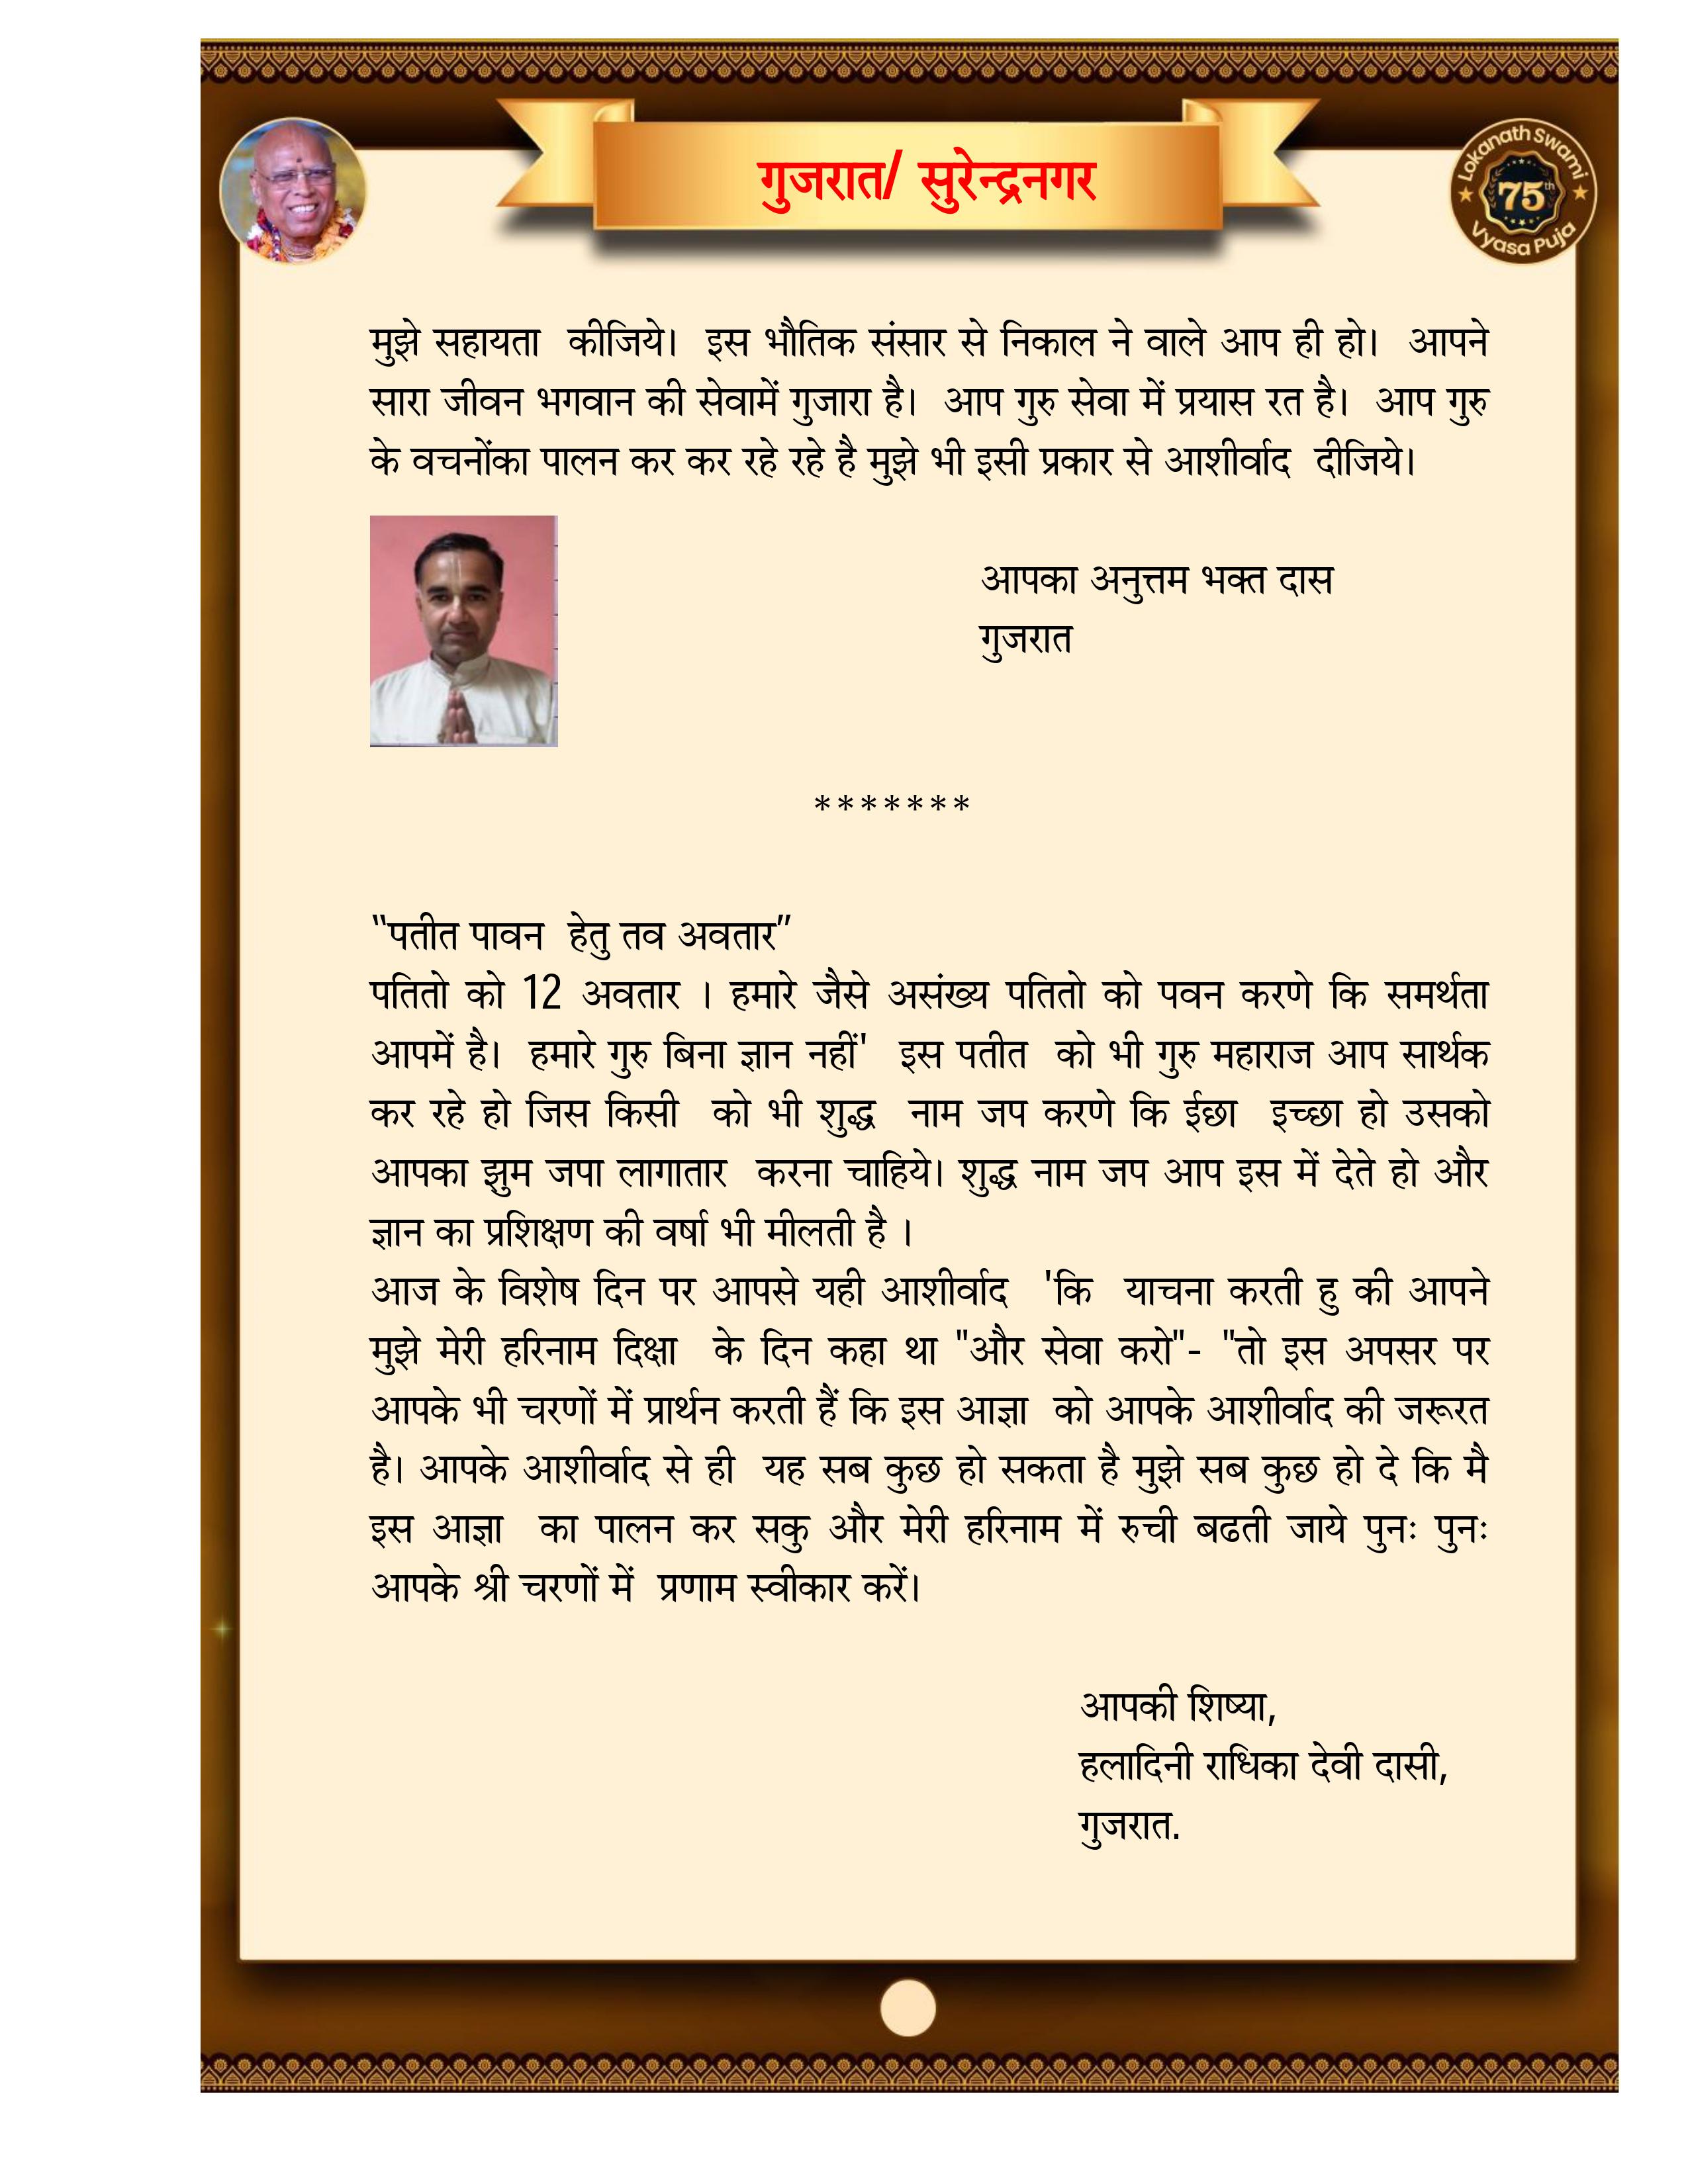 गुजरात/ सुरेन्द्रनगर
Lokanath Swami
75th
Vyasa Puja
मुझे सहायता कीजिये। इस भौतिक संसार से निकाल ने वाले आप ही हो। आपने
सारा जीवन भगवान की सेवामें गुजारा है। आप गुरु सेवा में प्रयास रत है। आप गुरु
के वचनोंका पालन कर कर रहे रहे है मुझे भी इसी प्रकार से आशीर्वाद दीजिये।
आपका अनुत्तम भक्त दास
गुजरात
*******
“पतीत पावन हेतु तव अवतार”
पतितो को 12 अवतार । हमारे जैसे असंख्य पतितो को पवन करणे कि समर्थता
आपमें है। हमारे गुरु बिना ज्ञान नहीं' इस पतीत को भी गुरु महाराज आप सार्थक
कर रहे हो जिस किसी को भी शुद्ध नाम जप करणे कि ईछा इच्छा हो उसको
आपका झुम जपा लागातार करना चाहिये। शुद्ध नाम जप आप इस में देते हो और
ज्ञान का प्रशिक्षण की वर्षा भी मीलती है ।
आज के विशेष दिन पर आपसे यही आशीर्वाद 'कि याचना करती हु की आपने
मुझे मेरी हरिनाम दिक्षा के दिन कहा था "और सेवा करो"- "तो इस अपसर पर
आपके भी चरणों में प्रार्थन करती हैं कि इस आज्ञा को आपके आशीर्वाद की जरूरत
है। आपके आशीर्वाद से ही यह सब कुछ हो सकता है मुझे सब कुछ हो दे कि मै
इस आज्ञा का पालन कर सकु और मेरी हरिनाम में रुची बढती जाये पुनः पुनः
आपके श्री चरणों में प्रणाम स्वीकार करें।
आपकी शिष्या,
हलादिनी राधिका देवी दासी,
गुजरात.